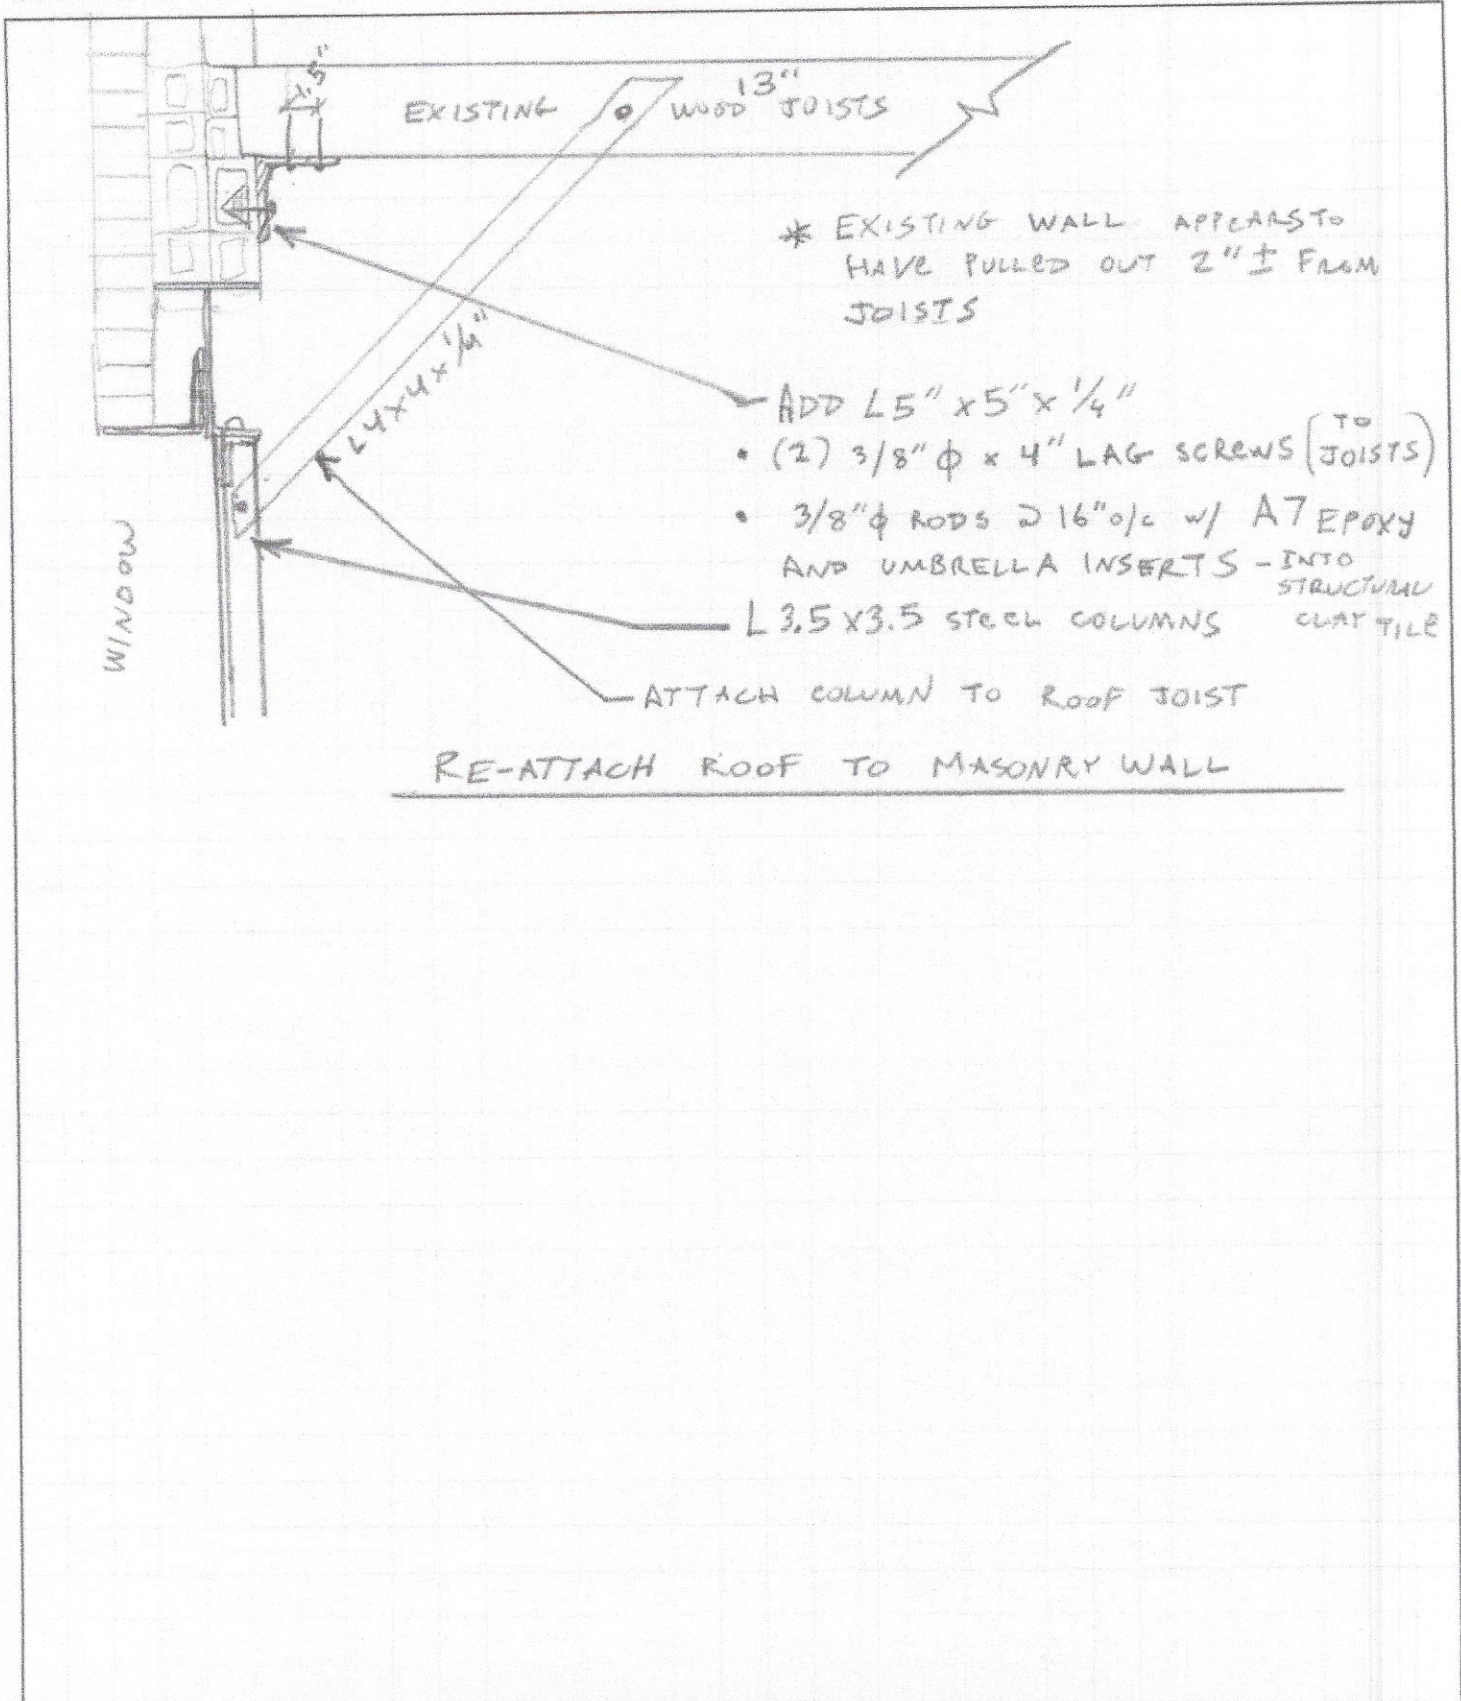 1.5"
EXISTING 13" WOOD JOISTS
* EXISTING WALL APPEARS TO
HAVE PULLED OUT 2" ± FROM
JOISTS
L4x4x1/4"
ADD L5" x 5" x 1/4"
• (2) 3/8" ϕ x 4" LAG SCREWS (TO JOISTS)
• 3/8" ϕ RODS @ 16" o/c w/ A7 EPOXY
AND UMBRELLA INSERTS - INTO
STRUCTURAL
CLAY TILE
L 3.5 x 3.5 STEEL COLUMNS
WINDOW
ATTACH COLUMN TO ROOF JOIST
RE-ATTACH ROOF TO MASONRY WALL